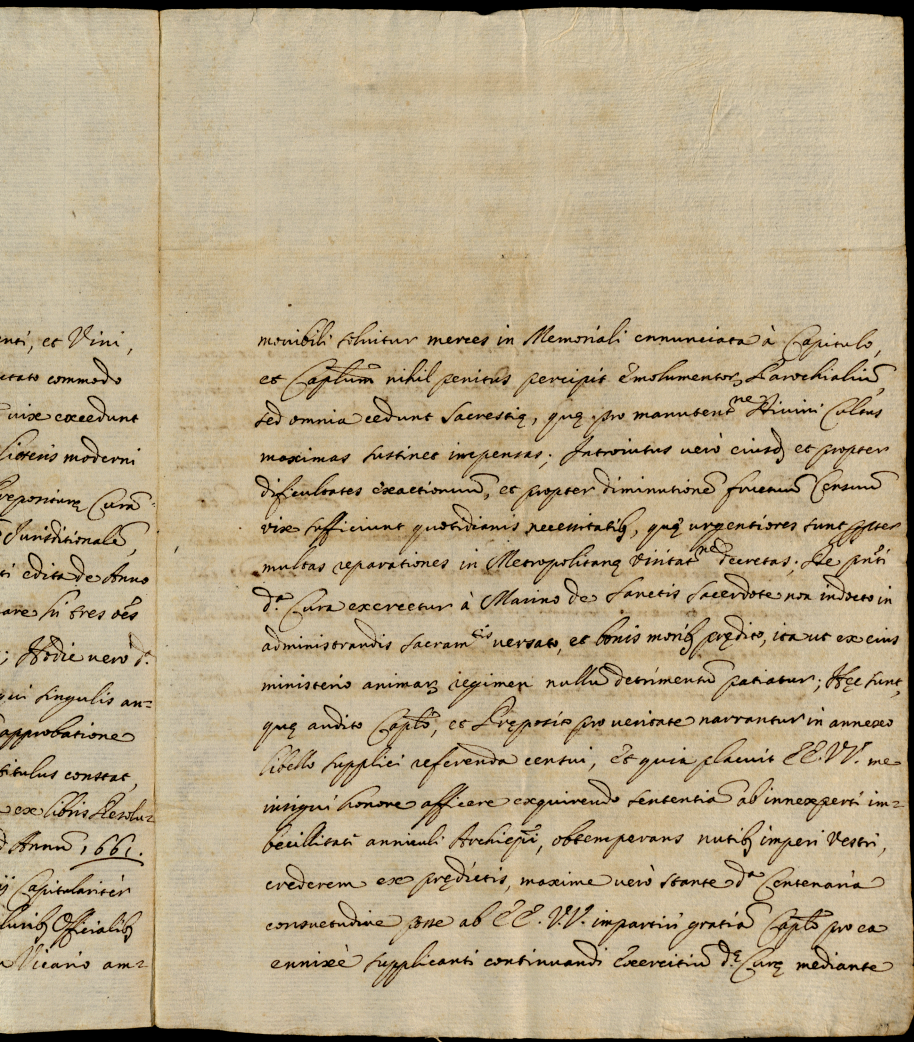 enti, et Vini,
commodo
vix excedunt
moderni
Prepositurę Curã
Jurisditionale,
edita de Anno
tres oẽs
; Hodie vero d.ª
qui singulis an=
approbatione
titulus constat
ex libris Resolu=
Annũ 1661.
Capitularitèr
Officialibꝫ
Vicario am=
movibili solvitur merces in Memoriali ennunciata à Capitulo,
et Capt̃lum nihil penitùs percipit Emolumentorꝫ Parochialiũ
sed omnia cedunt Sacrestię, quę pro manutent.ne Divini Cultus
maximas sustinet impensas; Introvitus verò eiusdꝫ et propter
dificultates exactionum, et propter diminutionẽ fructuũ Censuũ
vix sufficiunt quotidianis necessitatibꝫ, quę urgentiores sunt propter
multas reparationes in Metropolitanę Visitat.ne decretas; De pñti
d.ª Cura exercetur à Marino de Sanctis Sacerdote non indocto in
administrandis Sacram.tis versato, et bonis moribꝫ prędito, ita ut ex eius
ministerio animarꝫ regimen nullũ detrimentũ patiatur; Hęc sunt,
quę audito Capt̃lo, et Pręposito pro veritate narrantur in annexo
libello supplici referenda censui, Et quia placuit EE. VV. me
insigni honore afficere exquirendo sententiã ab innexperti im=
becillitati anniculi Archiepĩ, obtemperans nutibꝫ imperi Vestri,
crederem ex prędictis, maxime verò stante d.ª Centenaria
consuetudine posse ab EE. VV. impartiri gratiã Capt̃lo pro ea
ennixè supplicanti continuandi Exercitiũ d.ę Curę mediante